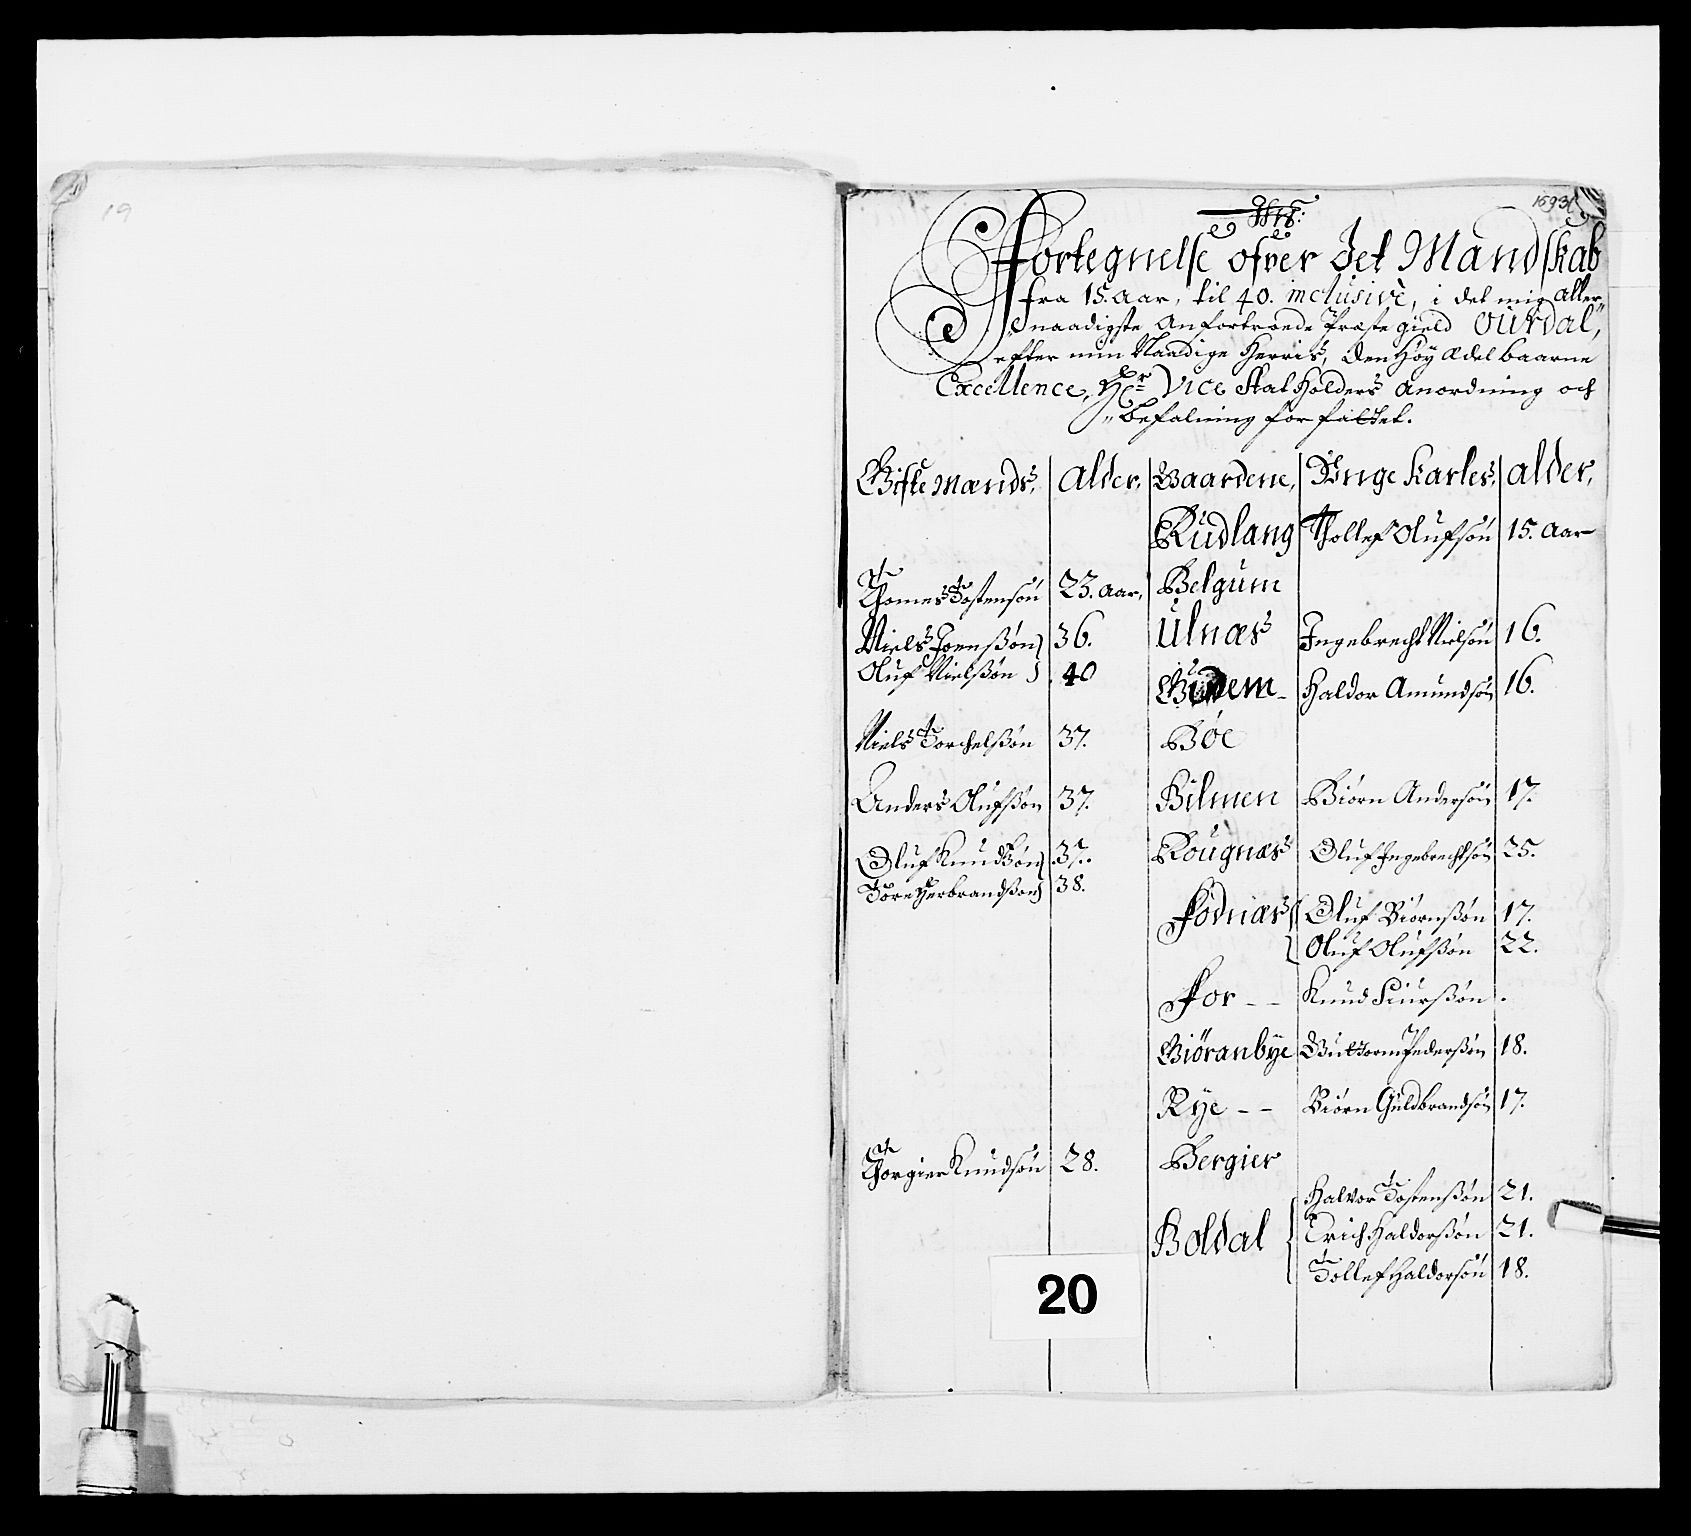 19
1693
Fortegnelse ofver det Mandskab
fra 15. aar, til 40. inclusive, i det mig aller,,
,,naadigste anfortroede Præste gield Ourdal,
efter min Naadige Herris, den Høy Ædelbaarne
Excellence, Hr Vice Statholders anordning och
,,befalning forfattet.
Gifte Mænds, Alder, Gaardene, Unge Karles, alder,
Rudlang Thollef Olufsøn 15. aar
Thomes Tostensøn 23. aar, Belgum
Niels Joensøn 36. Ulnæs Ingebrecht Nielsøn 16.
Oluf Nielsøn 40
Haldor Amundsøn 16.
Niels Torchelsøn 37. Bøe
Anders Olufsøn 37. Bilmen Biørn Andersøn 17.
Oluf Knudsøn 37. Rougnæs Oluf Ingebrechtsøn 25.
Tore Herbrandsøn 38.
Fodnæs Oluf Biørnsøn 17.
Oluf Olufsøn 22.
For -- Knud Siursøn .
Giøranbye Guttorm Pedersøn 18.
Rye -- Biørn Guldbrandsøn 17.
Thorgier Knudsøn 28. Bergier
Halvor Tostensøn 21.
Boldal Erich Haldorsøn 21.
Tollef Haldorsøn 18.
20